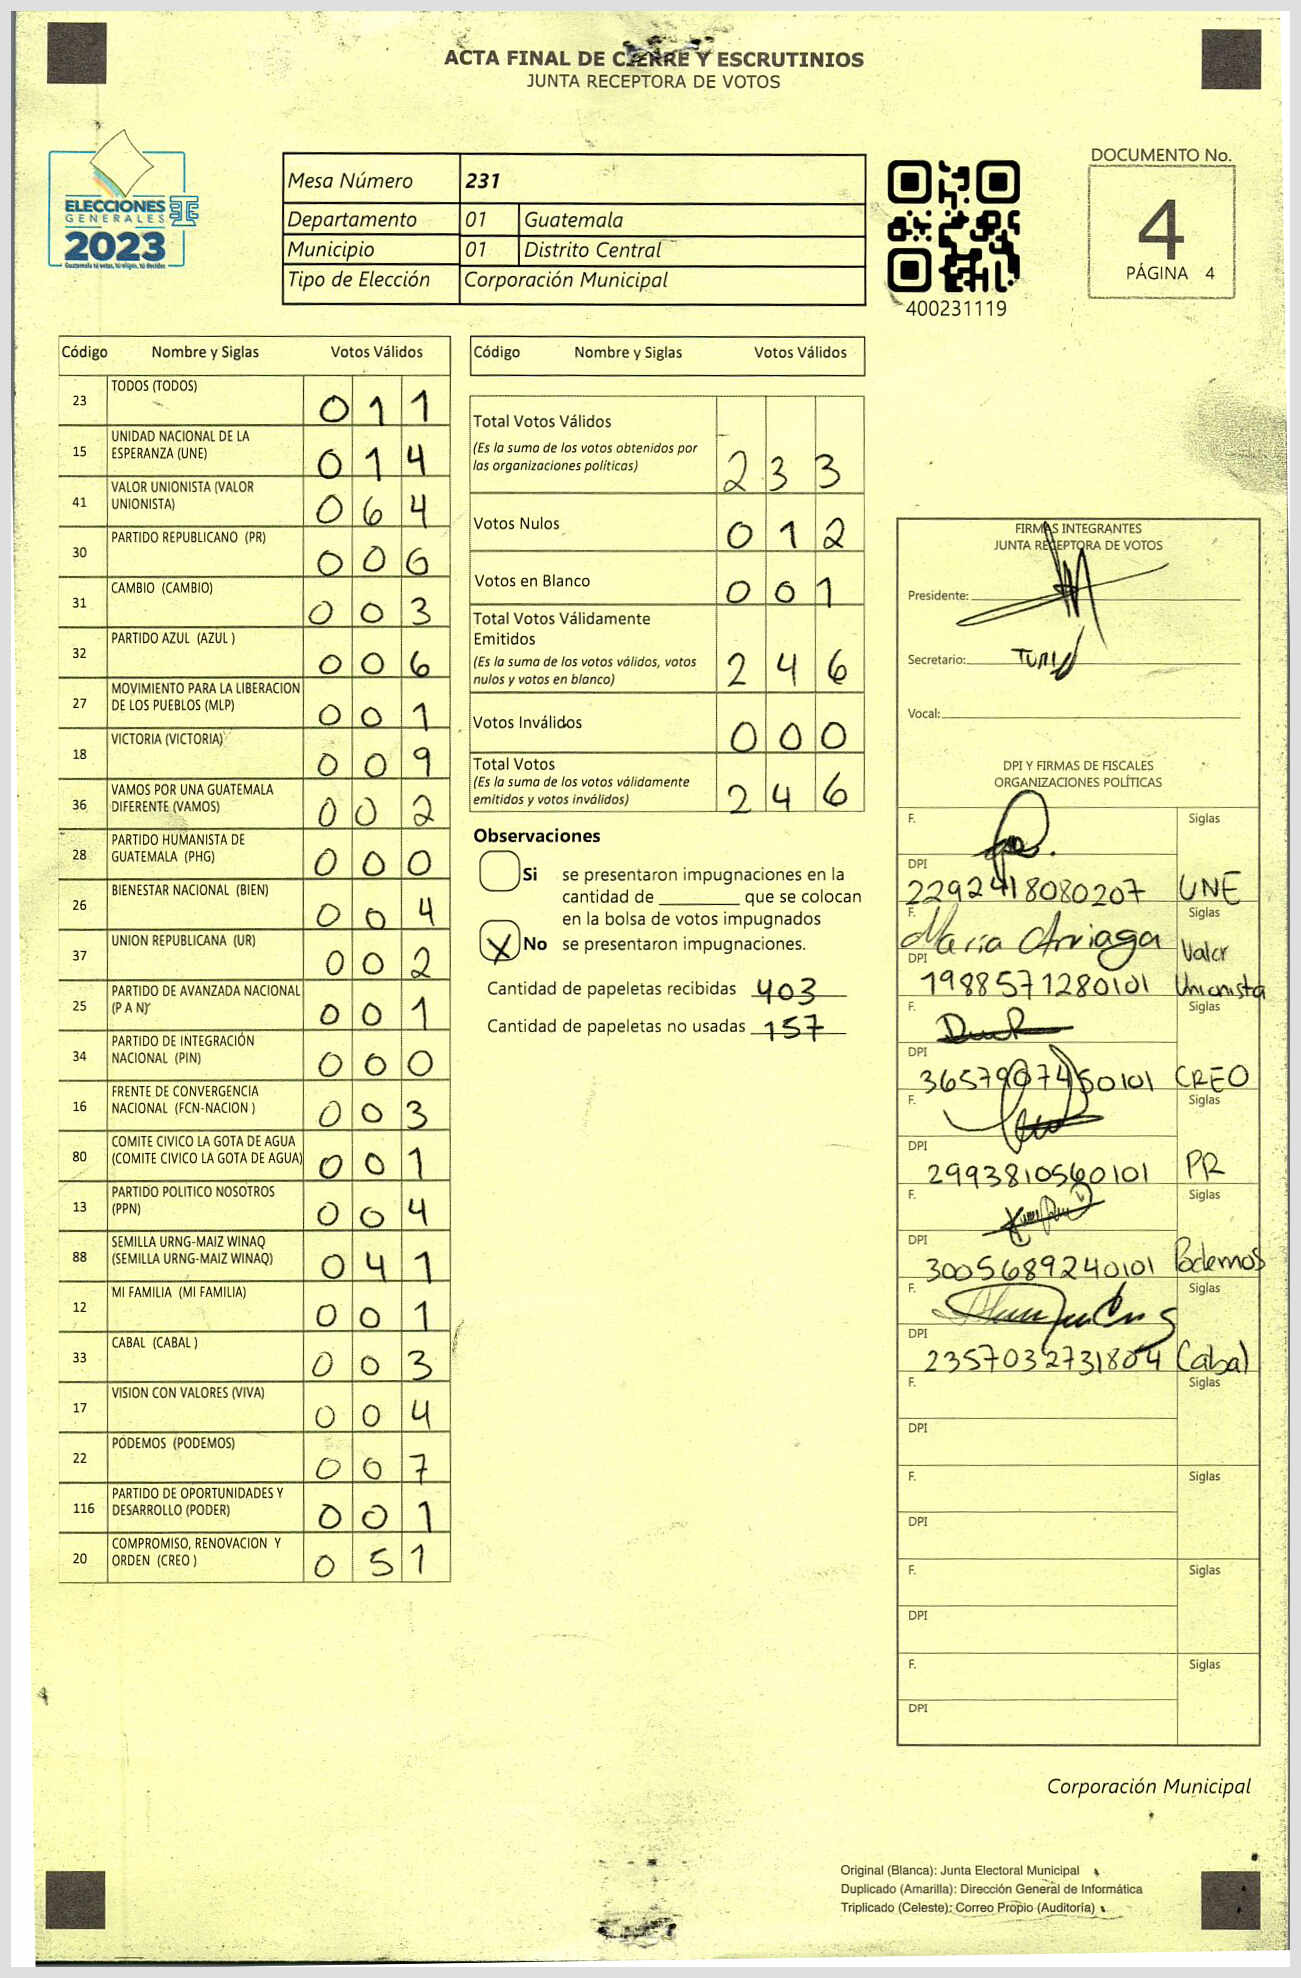 ACTA FINAL DE CIERRE Y ESCRUTINIOS
JUNTA RECEPTORA DE VOTOS
ELECCIONES
GENERALES
2023
Guatemala tú votas, tú eliges, tú decides
Mesa Número 231
Departamento 01 Guatemala
Municipio 01 Distrito Central
Tipo de Elección Corporación Municipal
400231119
DOCUMENTO No.
4
PÁGINA 4
Código Nombre y Siglas Votos Válidos
23 TODOS (TODOS) 0 1 1
15 UNIDAD NACIONAL DE LA
ESPERANZA (UNE) 0 1 4
41 VALOR UNIONISTA (VALOR
UNIONISTA) 0 6 4
30 PARTIDO REPUBLICANO (PR) 0 0 6
31 CAMBIO (CAMBIO) 0 0 3
32 PARTIDO AZUL (AZUL ) 0 0 6
27 MOVIMIENTO PARA LA LIBERACION
DE LOS PUEBLOS (MLP) 0 0 1
18 VICTORIA (VICTORIA) 0 0 9
36 VAMOS POR UNA GUATEMALA
DIFERENTE (VAMOS) 0 0 2
28 PARTIDO HUMANISTA DE
GUATEMALA (PHG) 0 0 0
26 BIENESTAR NACIONAL (BIEN) 0 0 4
37 UNION REPUBLICANA (UR) 0 0 2
25 PARTIDO DE AVANZADA NACIONAL
(P A N) 0 0 1
34 PARTIDO DE INTEGRACIÓN
NACIONAL (PIN) 0 0 0
16 FRENTE DE CONVERGENCIA
NACIONAL (FCN-NACION ) 0 0 3
80 COMITE CIVICO LA GOTA DE AGUA
(COMITE CIVICO LA GOTA DE AGUA) 0 0 1
13 PARTIDO POLITICO NOSOTROS
(PPN) 0 0 4
88 SEMILLA URNG-MAIZ WINAQ
(SEMILLA URNG-MAIZ WINAQ) 0 4 1
12 MI FAMILIA (MI FAMILIA) 0 0 1
33 CABAL (CABAL ) 0 0 3
17 VISION CON VALORES (VIVA) 0 0 4
22 PODEMOS (PODEMOS) 0 0 7
116 PARTIDO DE OPORTUNIDADES Y
DESARROLLO (PODER) 0 0 1
20 COMPROMISO, RENOVACION Y
ORDEN (CREO ) 0 5 1
Código Nombre y Siglas Votos Válidos
Total Votos Válidos
(Es la suma de los votos obtenidos por
las organizaciones políticas) 2 3 3
Votos Nulos 0 1 2
Votos en Blanco 0 0 1
Total Votos Válidamente
Emitidos
(Es la suma de los votos válidos, votos
nulos y votos en blanco) 2 4 6
Votos Inválidos 0 0 0
Total Votos
(Es la suma de los votos válidamente
emitidos y votos inválidos) 2 4 6
Observaciones
Si se presentaron impugnaciones en la
cantidad de ________ que se colocan
en la bolsa de votos impugnados
X No se presentaron impugnaciones.
Cantidad de papeletas recibidas 403
Cantidad de papeletas no usadas 157
FIRMAS INTEGRANTES
JUNTA RECEPTORA DE VOTOS
Presidente:
Secretario:
Vocal:
DPI Y FIRMAS DE FISCALES
ORGANIZACIONES POLÍTICAS
F. Siglas
DPI
2292418080207 UNE
F. Maria Arriaga Siglas
DPI Valor
1988571280101 Unionista
F. Siglas
DPI
3657907450101 CREO
F. Siglas
DPI
2993810560101 PR
F. Siglas
DPI
3005689240101 Podemos
F. Siglas
DPI
2357032731804 Cabal
F. Siglas
DPI
F. Siglas
DPI
F. Siglas
DPI
F. Siglas
DPI
Corporación Municipal
Original (Blanca): Junta Electoral Municipal
Duplicado (Amarilla): Dirección General de Informática
Triplicado (Celeste): Correo Propio (Auditoría)